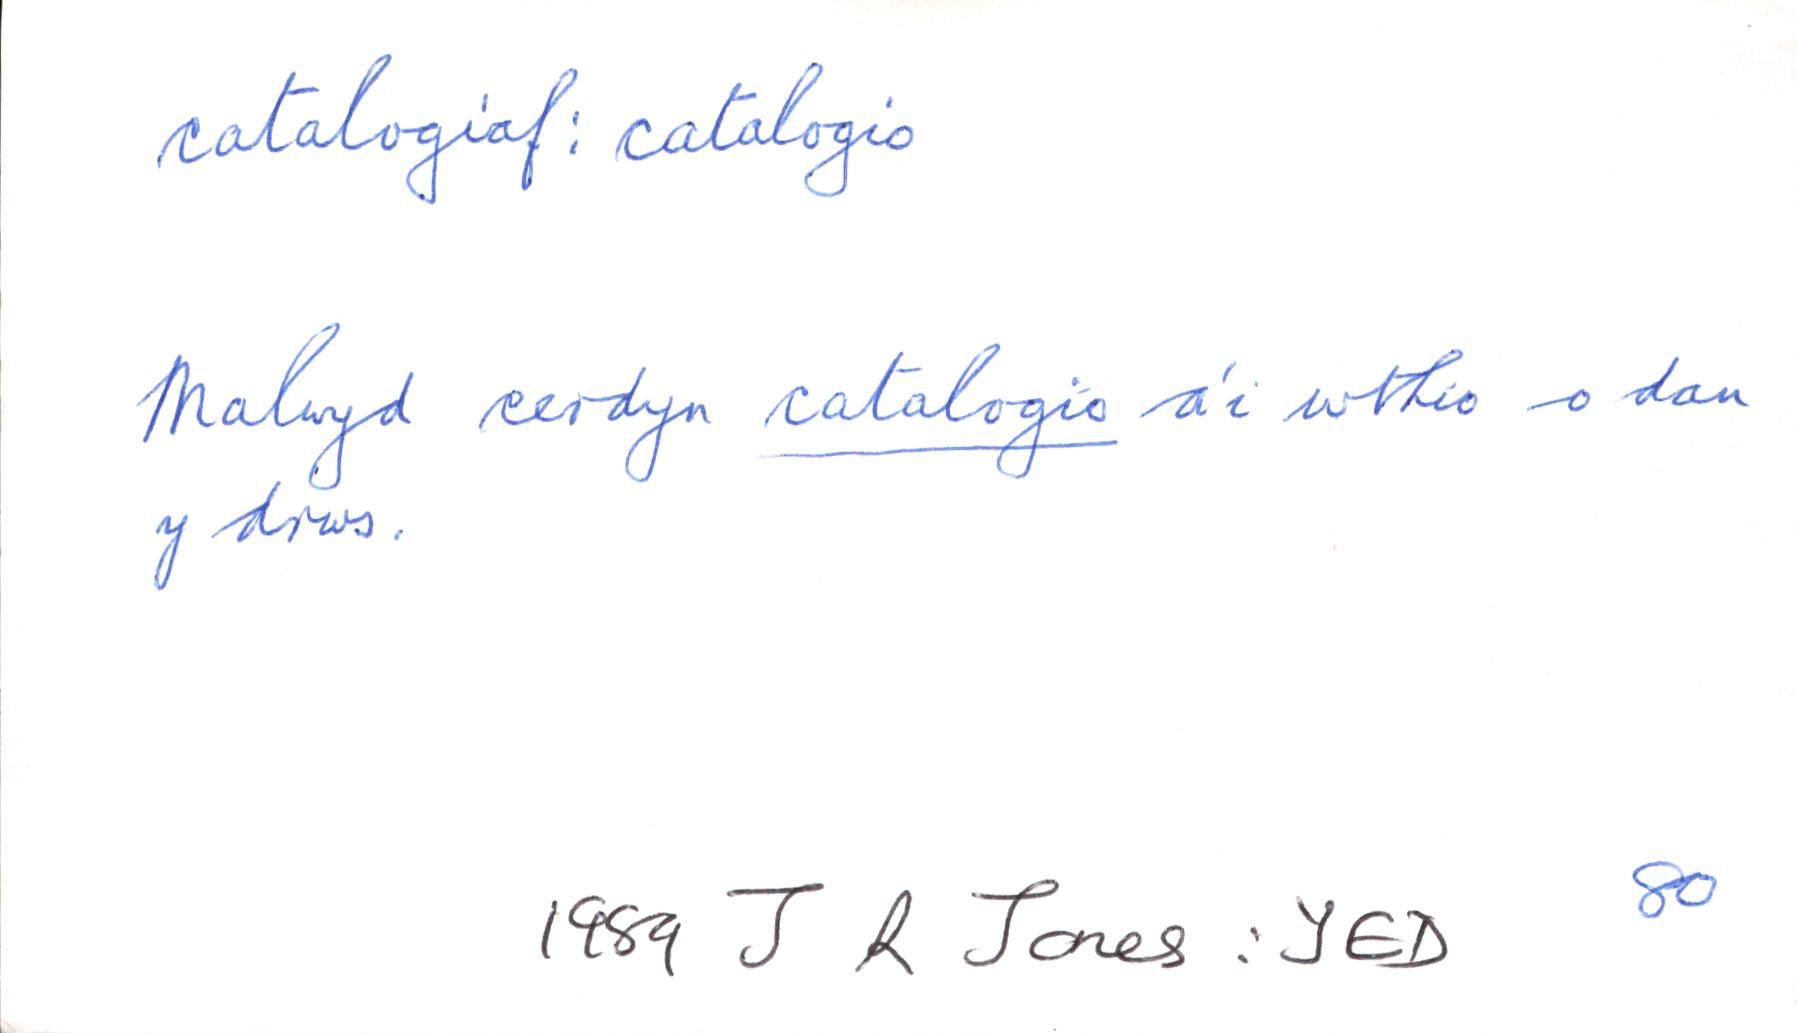 catalogiaf: catalogio
Malwyd cerdyn catalogio a'i wthio o dan
y drws.
80
1989 J R Jones : YED